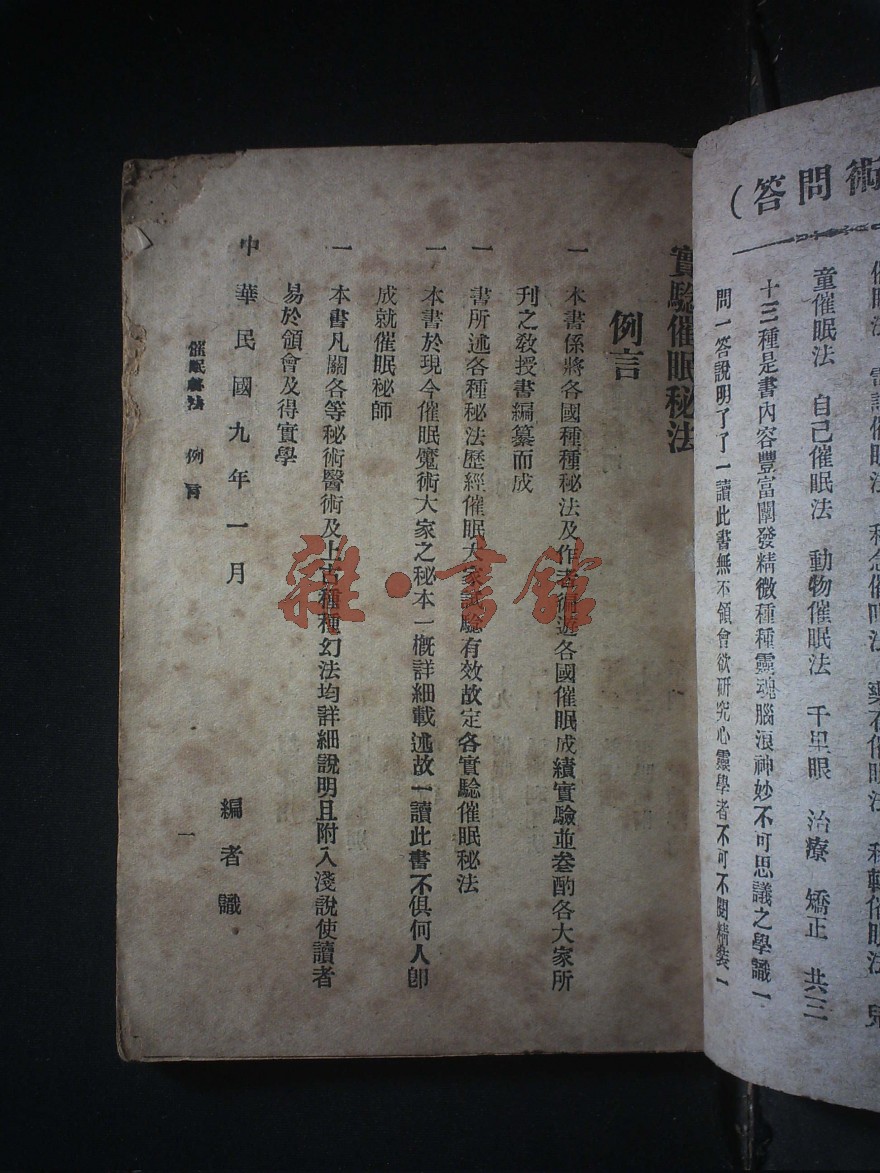 術問答）
催眠法
童催眠法　自己催眠法　動物催眠法　千里眼　治療　矯正　共三
十三種是書內容豐富闡發精微種種靈魂腦浪神妙不可思議之學識一
問一答說明了了一讀此書無不領會欲研究心靈學者不可不閱精裝一
實驗催眠秘法
例言
一　本書係將各國種種秘法及作者徧遊各國催眠成績實驗並叅酌各大家所
刊之敎授書編纂而成
一　書所述各種秘法歷經催眠大家試驗有效故定各實驗催眠秘法
一　本書於現今催眠魔術大家之秘本一槪詳細載述故一讀此書不俱何人卽
成就催眠秘師
一　本書凡關各等秘術醫術及上古種種幻法均詳細說明且附入淺說使讀者
易於領會及得實學
中華民國九年一月
編者識
催眠秘法　例言
一
雜·書館